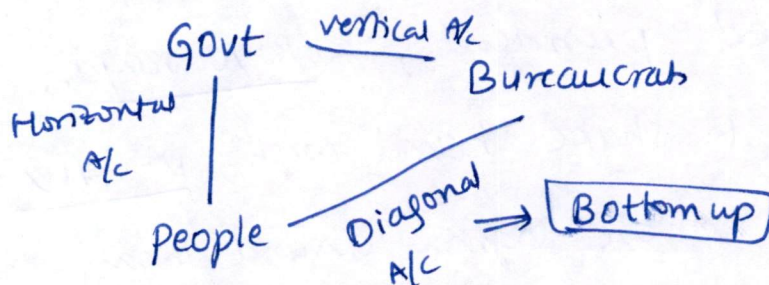 Govt vertical A/c
Bureaucrats
Horizontal
A/c
People
Diagonal
A/c
⇒ Bottom up